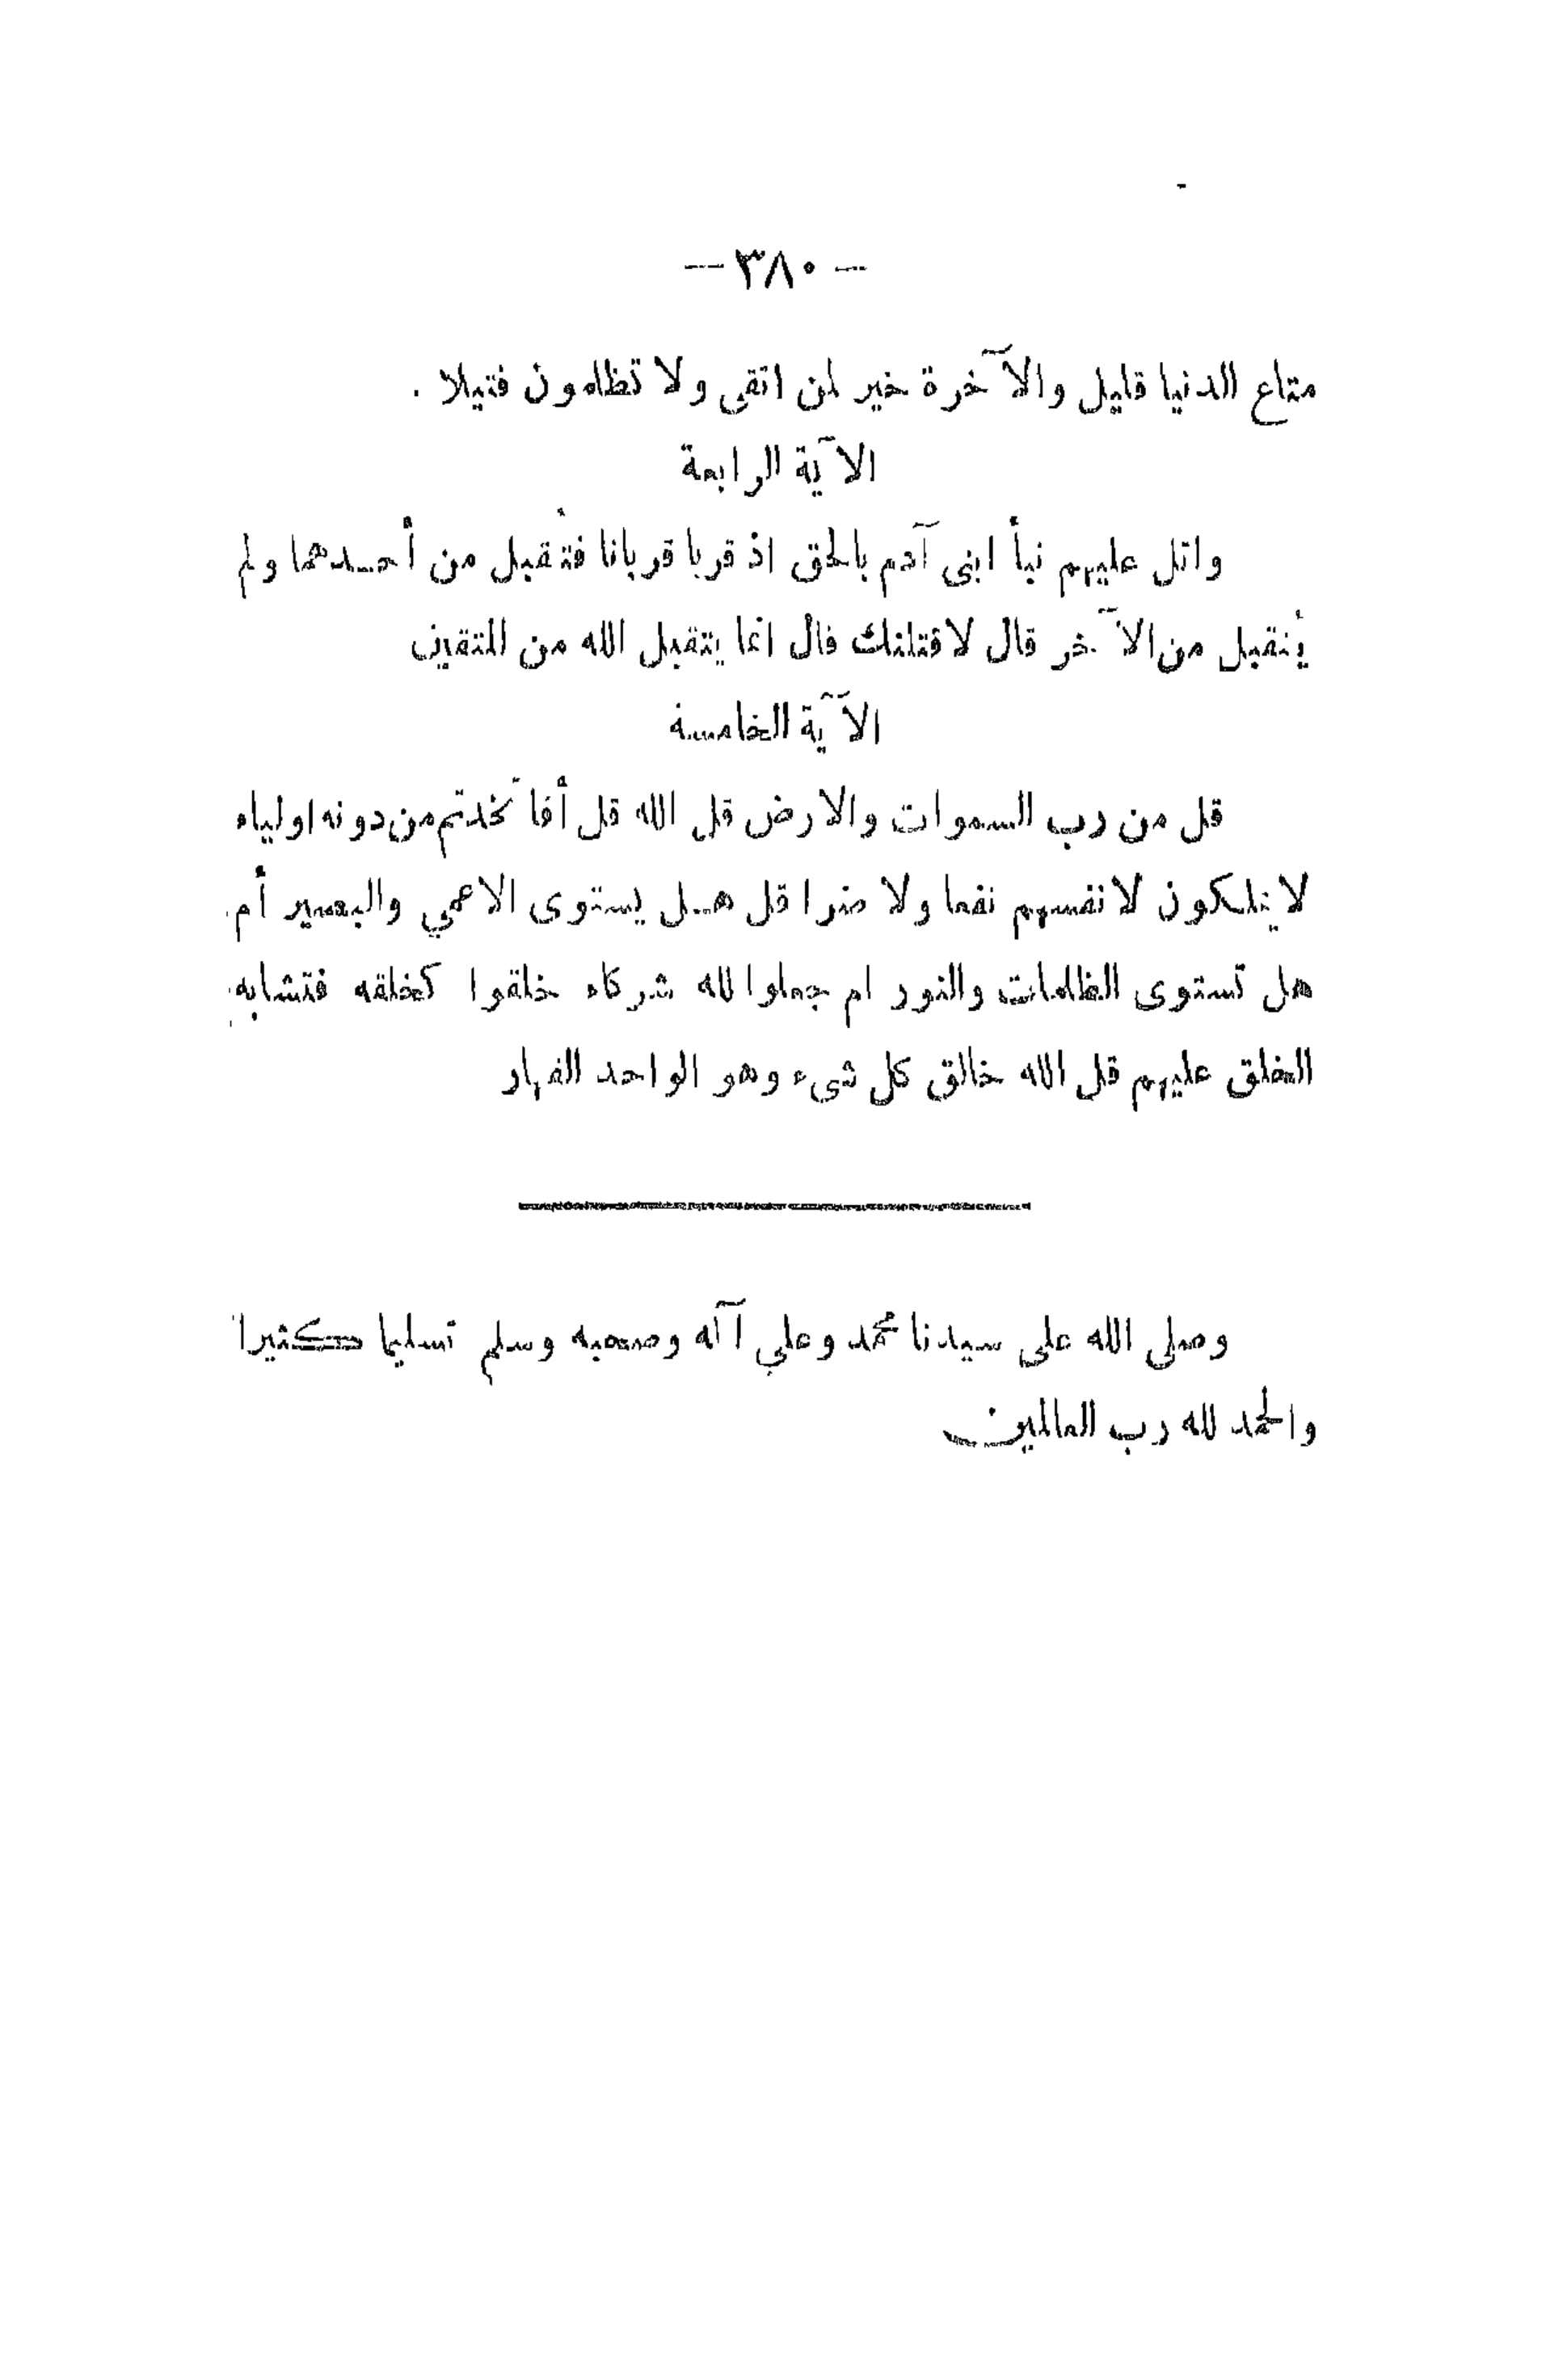 — ٣٨٠ —
متاع الدنيا قليل والآخرة خير لمن اتقى ولا تظلمون فتيلا .
الآية الرابعة
واتل عليهم نبأ ابنى آدم بالحق اذ قربا قربانا فتُقبل من أحدهما ولم
يُتقبل من الآخر قال لاقتلنك قال انما يتقبل الله من المتقين
الآية الخامسة
قل من رب السموات والارض قل الله قل أفاتخذتم من دونه اولياء
لا يملكون لانفسهم نفعا ولا ضرا قل هل يستوى الاعمي والبصير أم
هل تستوى الظلمات والنور ام جعلوا لله شركاء خلقوا كخلقه فتشابه
الخلق عليهم قل الله خالق كل شىء وهو الواحد القهار
وصلى الله على سيدنا محمد وعلي آله وصحبه وسلم تسليما كثيرا
والحمد لله رب العالمين